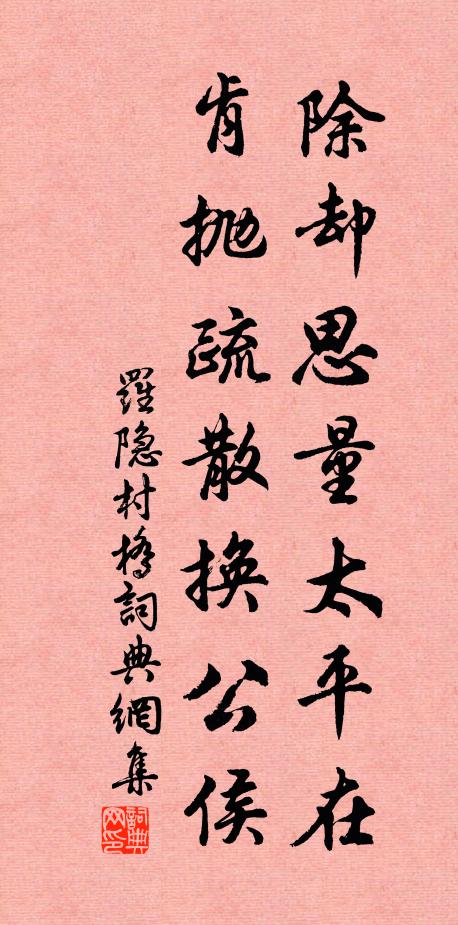 除却思量太平在
肯抛疏散换公侯
羅隐村橋詞典網集
詞典网印